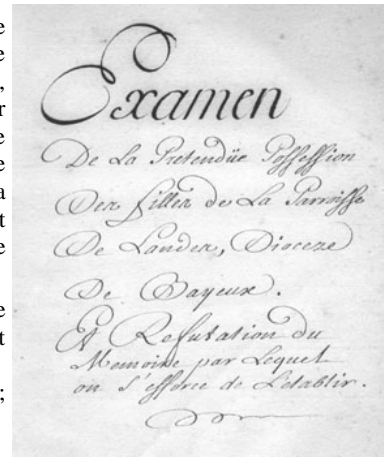 Examen
De La Pretendüe Possession
Des filles de La Parroisse
De Landes, Dioceze
De Bayeux.
Et Refutation du
Memoire par Lequel
on s'efforce de L'établir.